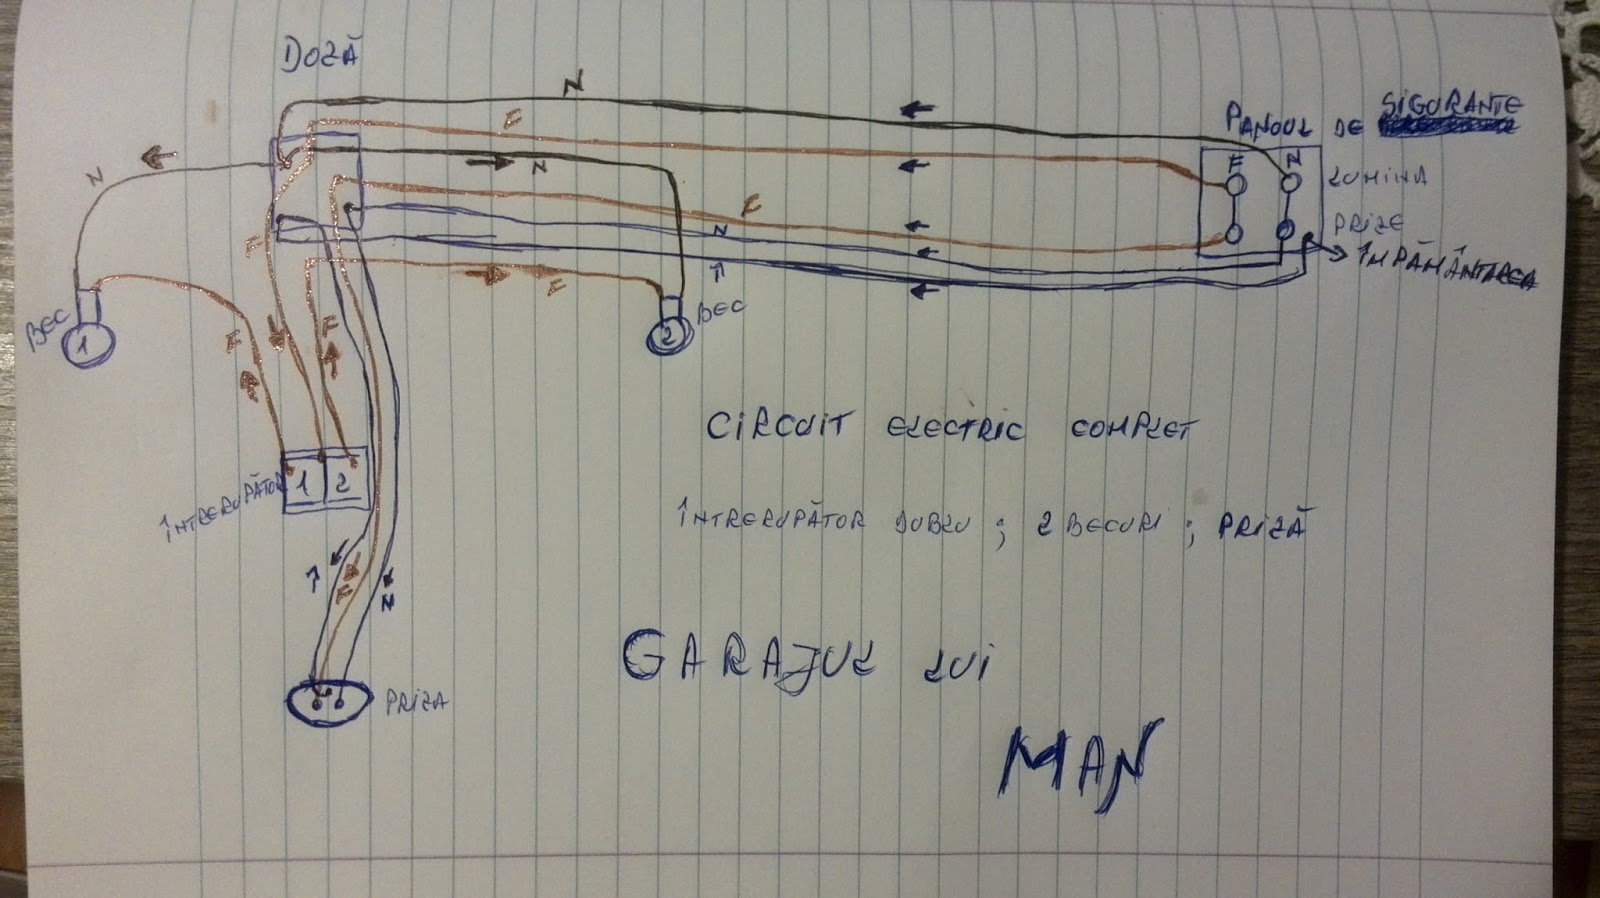 DOZĂ
N
F
PANOUL DE SIGURANTE
F N
LUMINA
PRIZE
ÎMPĂMÂNTAREA
N
N
F
F
N
F
BEC
1
F
F
BEC
2
ÎNTRERUPĂTOR
1 2
F
N
PRIZA
CIRCUIT ELECTRIC COMPLET
ÎNTRERUPĂTOR DUBLU ; 2 BECURI ; PRIZĂ
GARAJUL LUI
MAN